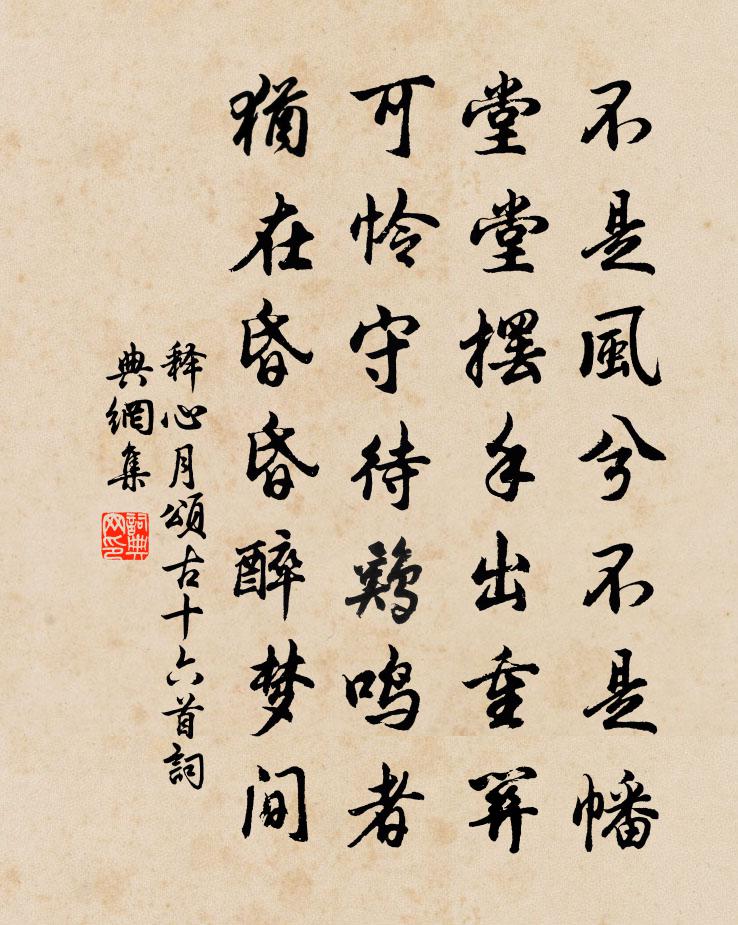 不是風兮不是幡
堂堂擺手出重関
可怜守待鷄鳴者
猶在昏昏醉梦间
释心月頌古十六首詞
典網集
詞典网印